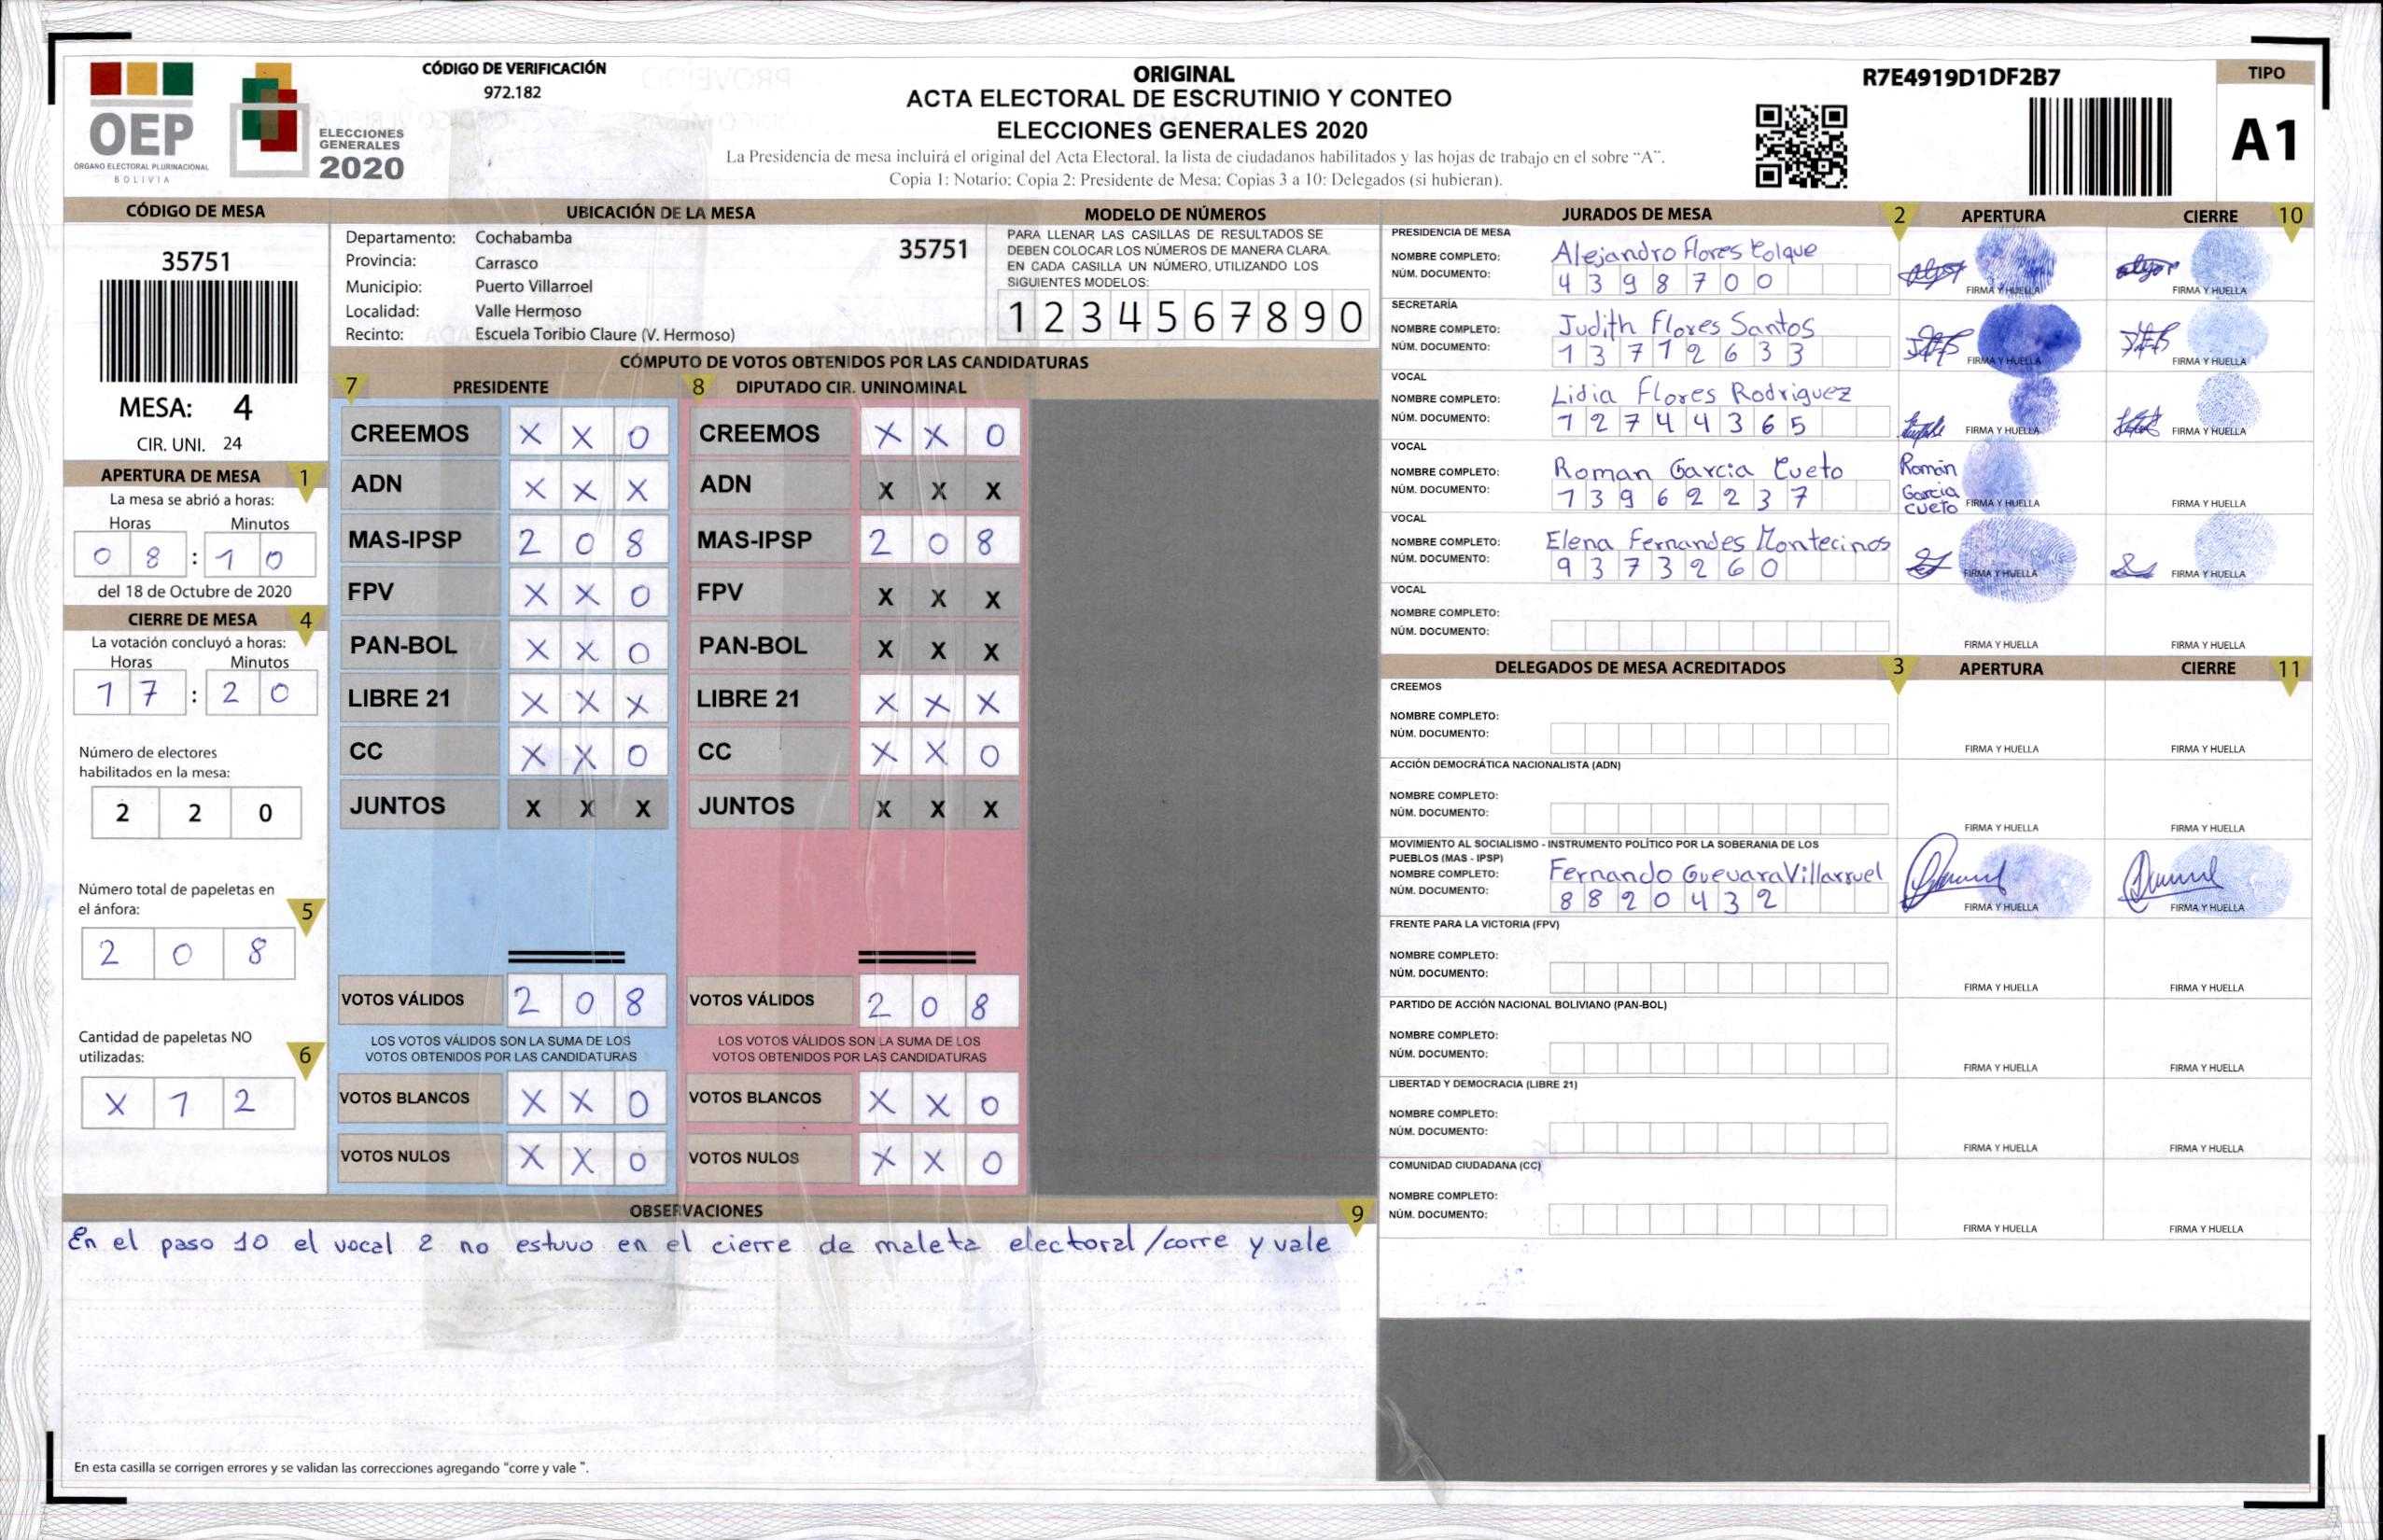 OEP
ÓRGANO ELECTORAL PLURINACIONAL
BOLIVIA
ELECCIONES
GENERALES
2020
CÓDIGO DE VERIFICACIÓN
972.182
ORIGINAL
ACTA ELECTORAL DE ESCRUTINIO Y CONTEO
ELECCIONES GENERALES 2020
La Presidencia de mesa incluirá el original del Acta Electoral, la lista de ciudadanos habilitados y las hojas de trabajo en el sobre “A”.
Copia 1: Notario; Copia 2: Presidente de Mesa; Copias 3 a 10: Delegados (si hubieran).
R7E4919D1DF2B7
TIPO
A1
CÓDIGO DE MESA
35751
MESA: 4
CIR. UNI. 24
APERTURA DE MESA 1
La mesa se abrió a horas:
Horas Minutos
0 8 : 1 0
del 18 de Octubre de 2020
CIERRE DE MESA 4
La votación concluyó a horas:
Horas Minutos
1 7 : 2 0
Número de electores
habilitados en la mesa:
2 2 0
Número total de papeletas en
el ánfora: 5
2 0 8
Cantidad de papeletas NO
utilizadas: 6
X 1 2
UBICACIÓN DE LA MESA
Departamento: Cochabamba
35751
Provincia: Carrasco
Municipio: Puerto Villarroel
Localidad: Valle Hermoso
Recinto: Escuela Toribio Claure (V. Hermoso)
MODELO DE NÚMEROS
PARA LLENAR LAS CASILLAS DE RESULTADOS SE
DEBEN COLOCAR LOS NÚMEROS DE MANERA CLARA.
EN CADA CASILLA UN NÚMERO, UTILIZANDO LOS
SIGUIENTES MODELOS:
1 2 3 4 5 6 7 8 9 0
CÓMPUTO DE VOTOS OBTENIDOS POR LAS CANDIDATURAS
7 PRESIDENTE 8 DIPUTADO CIR. UNINOMINAL
CREEMOS X X 0 CREEMOS X X 0
ADN X X X ADN X X X
MAS-IPSP 2 0 8 MAS-IPSP 2 0 8
FPV X X 0 FPV X X X
PAN-BOL X X 0 PAN-BOL X X X
LIBRE 21 X X X LIBRE 21 X X X
CC X X 0 CC X X 0
JUNTOS X X X JUNTOS X X X
VOTOS VÁLIDOS 2 0 8 VOTOS VÁLIDOS 2 0 8
LOS VOTOS VÁLIDOS SON LA SUMA DE LOS LOS VOTOS VÁLIDOS SON LA SUMA DE LOS
VOTOS OBTENIDOS POR LAS CANDIDATURAS VOTOS OBTENIDOS POR LAS CANDIDATURAS
VOTOS BLANCOS X X 0 VOTOS BLANCOS X X 0
VOTOS NULOS X X 0 VOTOS NULOS X X 0
OBSERVACIONES 9
En el paso 10 el vocal 2 no estuvo en el cierre de maleta electoral/corre y vale
En esta casilla se corrigen errores y se validan las correcciones agregando “corre y vale ”.
JURADOS DE MESA 2 APERTURA CIERRE 10
PRESIDENCIA DE MESA
NOMBRE COMPLETO: Alejandro Flores Colque
NÚM. DOCUMENTO: 4 3 9 8 7 0 0
FIRMA Y HUELLA FIRMA Y HUELLA
SECRETARÍA
NOMBRE COMPLETO: Judith Flores Santos
NÚM. DOCUMENTO: 1 3 7 1 2 6 3 3
FIRMA Y HUELLA FIRMA Y HUELLA
VOCAL
NOMBRE COMPLETO: Lidia Flores Rodriguez
NÚM. DOCUMENTO: 1 2 7 4 4 3 6 5
FIRMA Y HUELLA FIRMA Y HUELLA
VOCAL
NOMBRE COMPLETO: Roman Garcia Cueto
NÚM. DOCUMENTO: 1 3 9 6 2 2 3 7
Román
Garcia
cueto
FIRMA Y HUELLA FIRMA Y HUELLA
VOCAL
NOMBRE COMPLETO: Elena Fernandes Montecinos
NÚM. DOCUMENTO: 9 3 7 3 2 6 0
FIRMA Y HUELLA FIRMA Y HUELLA
VOCAL
NOMBRE COMPLETO:
NÚM. DOCUMENTO:
FIRMA Y HUELLA FIRMA Y HUELLA
DELEGADOS DE MESA ACREDITADOS 3 APERTURA CIERRE 11
CREEMOS
NOMBRE COMPLETO:
NÚM. DOCUMENTO:
FIRMA Y HUELLA FIRMA Y HUELLA
ACCIÓN DEMOCRÁTICA NACIONALISTA (ADN)
NOMBRE COMPLETO:
NÚM. DOCUMENTO:
FIRMA Y HUELLA FIRMA Y HUELLA
MOVIMIENTO AL SOCIALISMO - INSTRUMENTO POLÍTICO POR LA SOBERANIA DE LOS
PUEBLOS (MAS - IPSP)
NOMBRE COMPLETO: Fernando Guevara Villarruel
NÚM. DOCUMENTO: 8 8 2 0 4 3 2
FIRMA Y HUELLA FIRMA Y HUELLA
FRENTE PARA LA VICTORIA (FPV)
NOMBRE COMPLETO:
NÚM. DOCUMENTO:
FIRMA Y HUELLA FIRMA Y HUELLA
PARTIDO DE ACCIÓN NACIONAL BOLIVIANO (PAN-BOL)
NOMBRE COMPLETO:
NÚM. DOCUMENTO:
FIRMA Y HUELLA FIRMA Y HUELLA
LIBERTAD Y DEMOCRACIA (LIBRE 21)
NOMBRE COMPLETO:
NÚM. DOCUMENTO:
FIRMA Y HUELLA FIRMA Y HUELLA
COMUNIDAD CIUDADANA (CC)
NOMBRE COMPLETO:
NÚM. DOCUMENTO:
FIRMA Y HUELLA FIRMA Y HUELLA